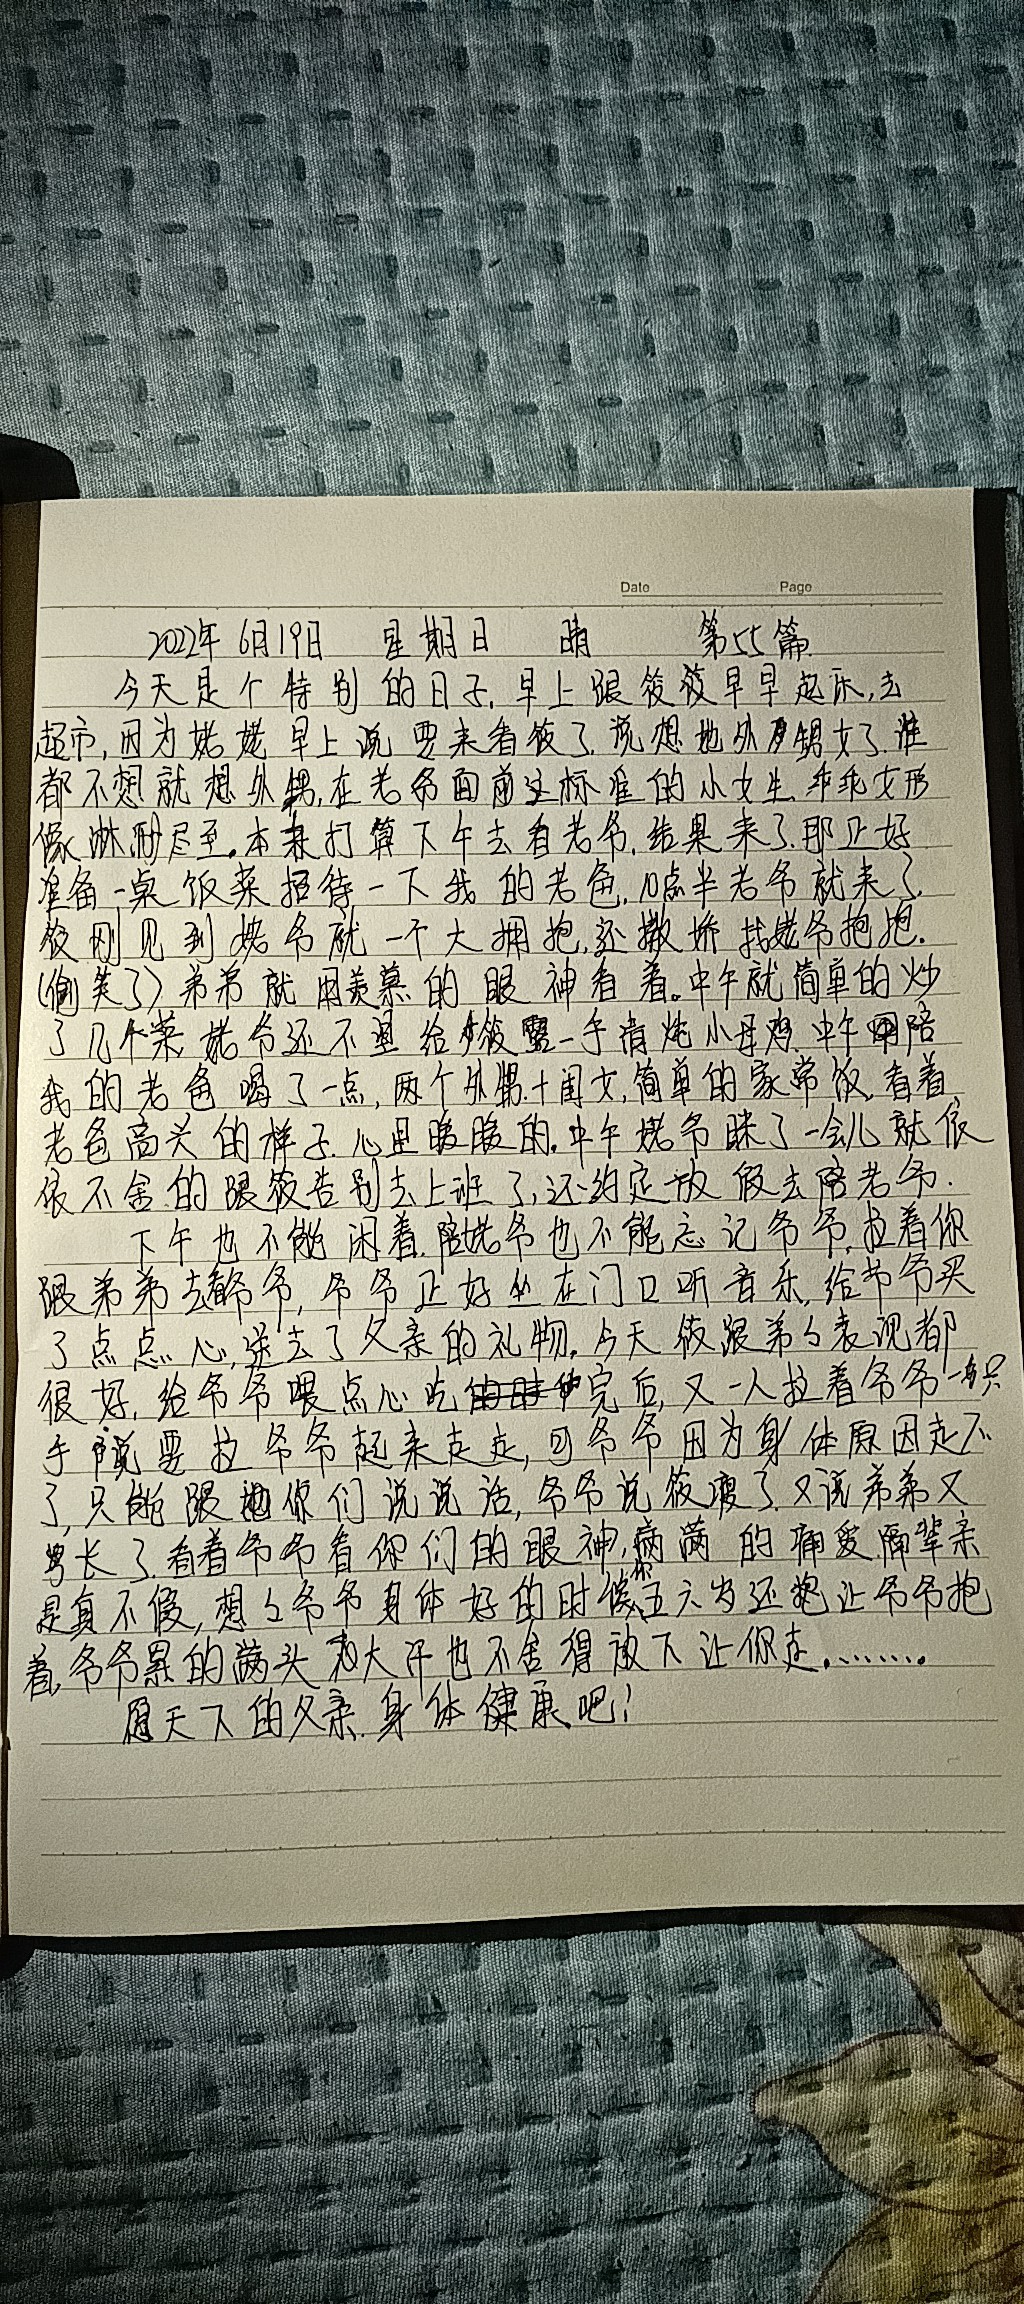 Date Page
2022年 6月19日 星期日 晴 第55篇
今天是个特别的日子.早上跟筱筱早早起床,去
超市,因为姥姥早上说要来看筱了.说想她外甥女了.谁
都不想就想外甥,在老爷面前这标准的小女生.乖乖女形
像淋耐尽至。本来打算下午去看老爷,结果来了.那正好
准备一桌饭菜招待一下我的老爸,10点半老爷就来了.
筱刚见到姥爷就一个大拥抱,还撒娇找姥爷抱抱.
(偷笑了)弟弟就用羡慕的眼神看着。中午就简单的炒
了几个菜.姥爷还不望给筱露一手清炖小母鸡.中午陪
我的老爸喝了一点,两个外甥十闺女,简单的家常饭.看着
老爸高兴的样子.心里暖暖的.中午姥爷眯了一会儿就依
依不舍的跟筱告别去上班了,还约定放假去陪老爷.
下午也不能闲着.陪姥爷也不能忘记爷爷.拉着你
跟弟弟去看爷爷,爷爷正好坐在门口听音乐,给爷爷买
了点点心,送去了父亲的礼物.今天筱跟弟々表现都
很好,给爷爷喂点心吃完后,又一人拉着爷爷一只
手说要拉爷爷起来走走,可爷爷因为身体原因走不
了,只能跟你们说说话,爷爷说筱瘦了.又说弟弟又
长了.看着爷爷看你们的眼神,满满的疼爱.隔辈亲
是真不假,想々爷爷身体好的时候你五六岁还抱让爷爷抱
着,爷爷累的满头大汗也不舍得放下让你走.........
愿天下的父亲.身体健康吧!